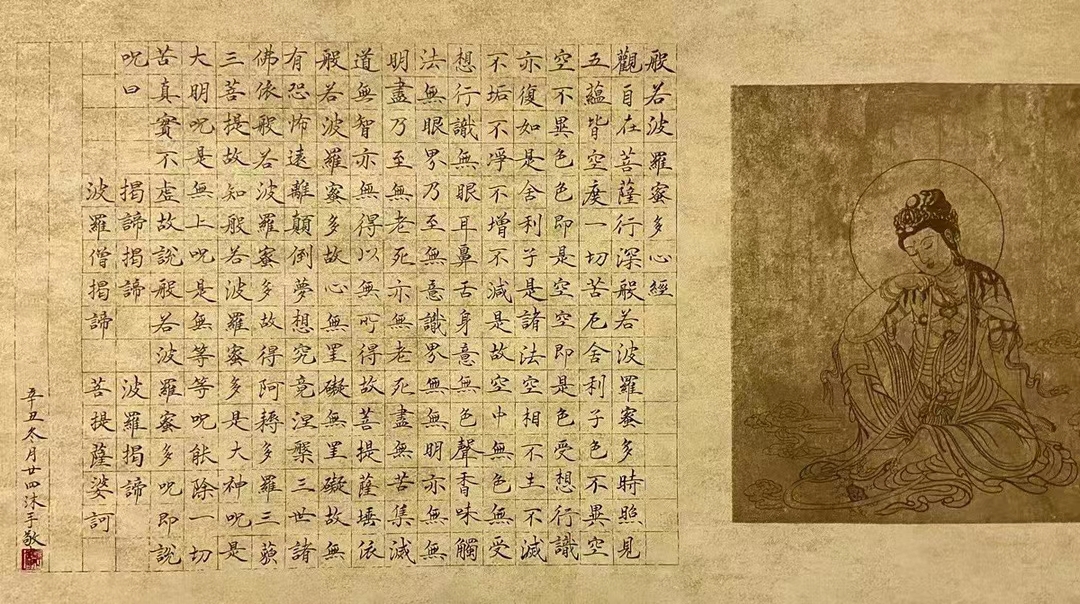 般若波羅蜜多心經
觀自在菩薩行深般若波羅蜜多時照見
五蘊皆空度一切苦厄舍利子色不異空
空不異色色即是空空即是色受想行識
亦復如是舍利子是諸法空相不生不滅
不垢不淨不增不減是故空中無色無受
想行識無眼耳鼻舌身意無色聲香味觸
法無眼界乃至無意識界無無明亦無無
明盡乃至無老死亦無老死盡無苦集滅
道無智亦無得以無所得故菩提薩埵依
般若波羅蜜多故心無罣礙無罣礙故無
有恐怖遠離顛倒夢想究竟涅槃三世諸
佛依般若波羅蜜多故得阿耨多羅三藐
三菩提故知般若波羅蜜多是大神呪是
大明呪是無上呪是無等等呪能除一切
苦真實不虛故說般若波羅蜜多呪即說
呪曰 揭諦揭諦 波羅揭諦
波羅僧揭諦 菩提薩婆訶
辛丑冬月廿四沐手敬